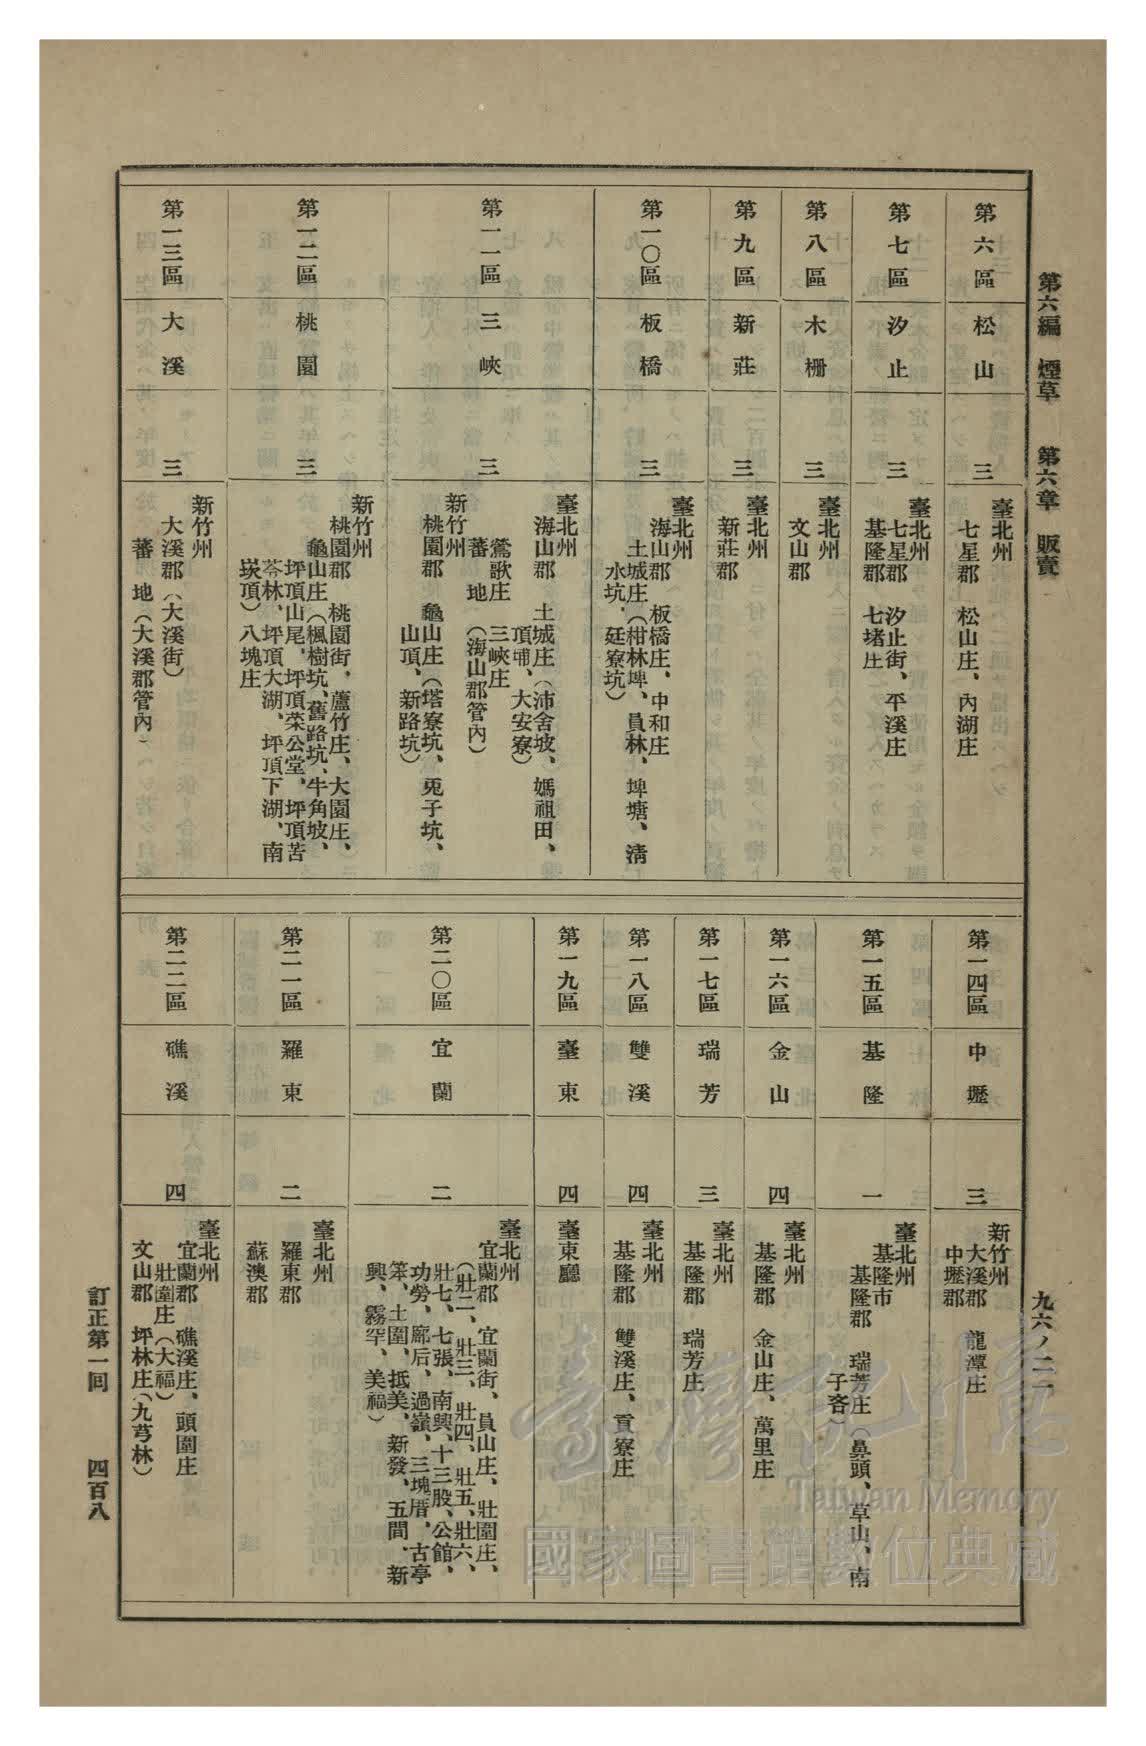 第六編 煙草 第六章 販賣
九六ノ二一
第六區
松山
三
臺北州
七星郡 松山庄、內湖庄
第七區
汐止
三
臺北州
七星郡 汐止街、平溪庄
基隆郡 七堵庄
第八區
木柵
三
臺北州
文山郡
第九區
新莊
三
臺北州
新莊郡
第一〇區
板橋
三
臺北州
海山郡 板橋庄、中和庄
土城庄(柑林埤、員林、埤塘、清
水坑、廷寮坑)
第一一區
三峽
三
臺北州
海山郡 土城庄(沛舍坡、媽祖田、
頂埔、大安寮)
鶯歌庄 三峽庄
蕃地 (海山郡管內)
新竹州
桃園郡 龜山庄(塔寮坑、兎子坑、
山頂、新路坑)
第一二區
桃園
三
新竹州
桃園郡 桃園街、蘆竹庄、大園庄、
龜山庄(楓樹坑、舊路坑、牛角坡、
坪頂山尾、坪頂菜公堂、坪頂苦
苓林、坪頂大湖、坪頂下湖、南
崁頂)八塊庄
第一三區
大溪
三
新竹州
大溪郡(大溪街)
蕃地(大溪郡管內)
第一四區
中壢
三
新竹州
大溪郡 龍潭庄
中壢郡
第一五區
基隆
一
臺北州
基隆市
基隆郡 瑞芳庄(鼻頭、草山、南
子吝)
第一六區
金山
四
臺北州
基隆郡 金山庄、萬里庄
第一七區
瑞芳
三
臺北州
基隆郡 瑞芳庄
第一八區
雙溪
四
臺北州
基隆郡 雙溪庄、貢寮庄
第一九區
臺東
四
臺東廳
第二〇區
宜蘭
二
臺北州
宜蘭郡 宜蘭街、員山庄、壯圍庄、
(壯二、壯三、壯四、壯五、壯六、
壯七、七張、南興、十三股、公館、
功勞、廍后、過嶺、三塊厝、古亭
笨、土圍、抵美、新發、五間、新
興、霧罕、美福)
第二一區
羅東
二
臺北州
羅東郡
蘇澳郡
第二二區
礁溪
四
臺北州
宜蘭郡 礁溪庄、頭圍庄
壯圍庄(大福)
文山郡 坪林庄(九芎林)
訂正第一回 四百八
臺灣記憶
Taiwan Memory
國家圖書館數位典藏